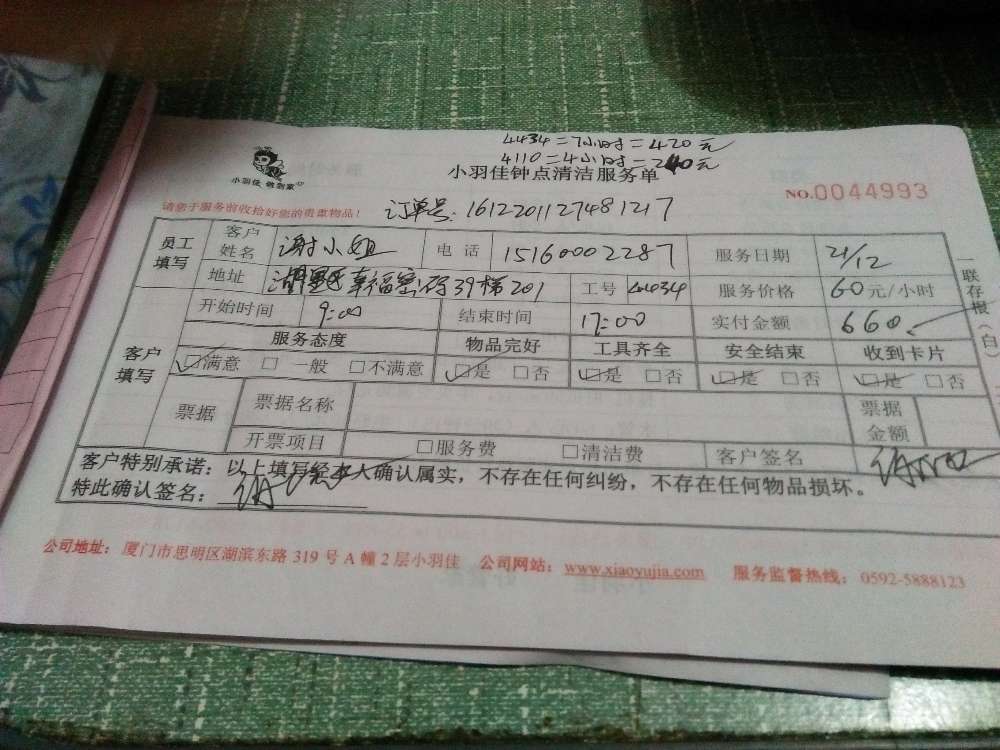 4434=7小时=420元
4110=4小时=240元
小羽佳 做到家
小羽佳钟点清洁服务单
NO.0044993
请您于服务前收拾好您的贵重物品!
订单号:1612201127481217
员工填写 客户姓名 谢小姐 电话 15160002287 服务日期 21/12
地址 湖里区幸福密码39梯201 工号 4434 服务价格 60元/小时
客户填写 开始时间 9:00 结束时间 17:00 实付金额 660
服务态度 物品完好 工具齐全 安全结束 收到卡片
☑满意 □一般 □不满意 ☑是 □否 ☑是 □否 ☑是 □否 ☑是 □否
票据 票据名称 票据金额
开票项目 □服务费 □清洁费 客户签名
客户特别承诺:以上填写经本人确认属实,不存在任何纠纷,不存在任何物品损坏。
特此确认签名:
一联存报(白)
公司地址:厦门市思明区湖滨东路 319 号 A 幢 2 层小羽佳 公司网站:www.xiaoyujia.com 服务监督热线:0592-5888123